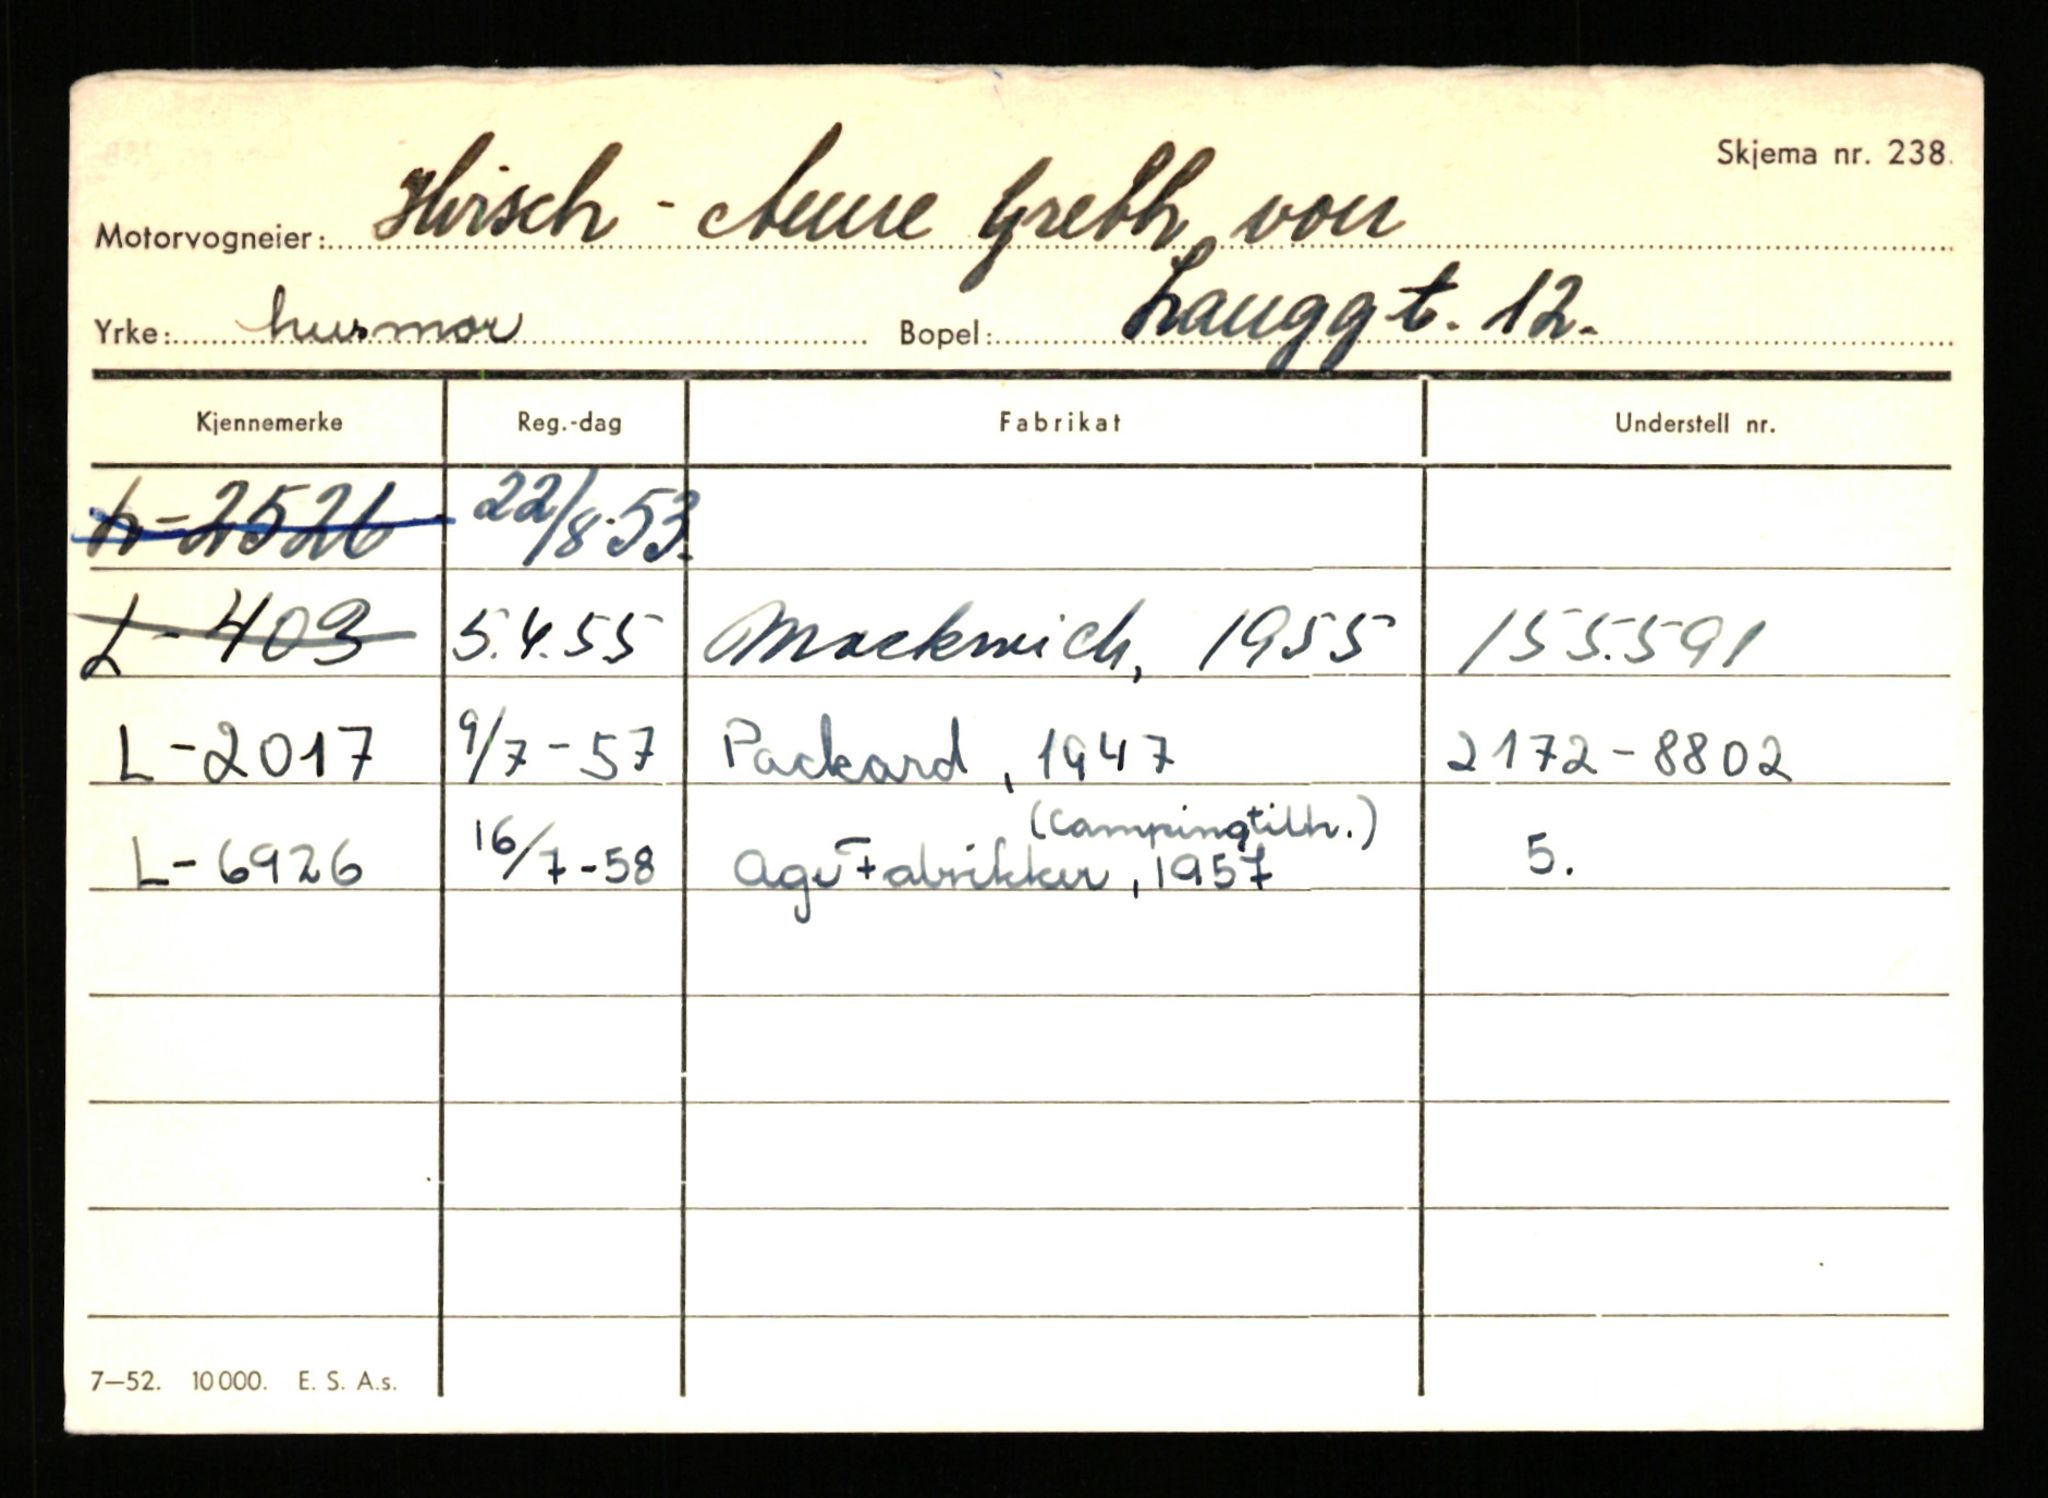 Skjema nr. 238.
Motorvogneier: Hirsch - Anne Greth von
Yrke: husmor Bopel: Langgt. 12.
Kjennemerke Reg.-dag Fabrikat Understell nr.
L-2526 22/8-53.
L-403 5.4.55 Mockwich, 1955 155.591
L-2017 9/7-57 Packard, 1947 2172-8802
(Campingtilh.)
L-6926 16/7-58 Agu-Fabrikker, 1957 5.
7—52. 10 000. E. S. A.s.